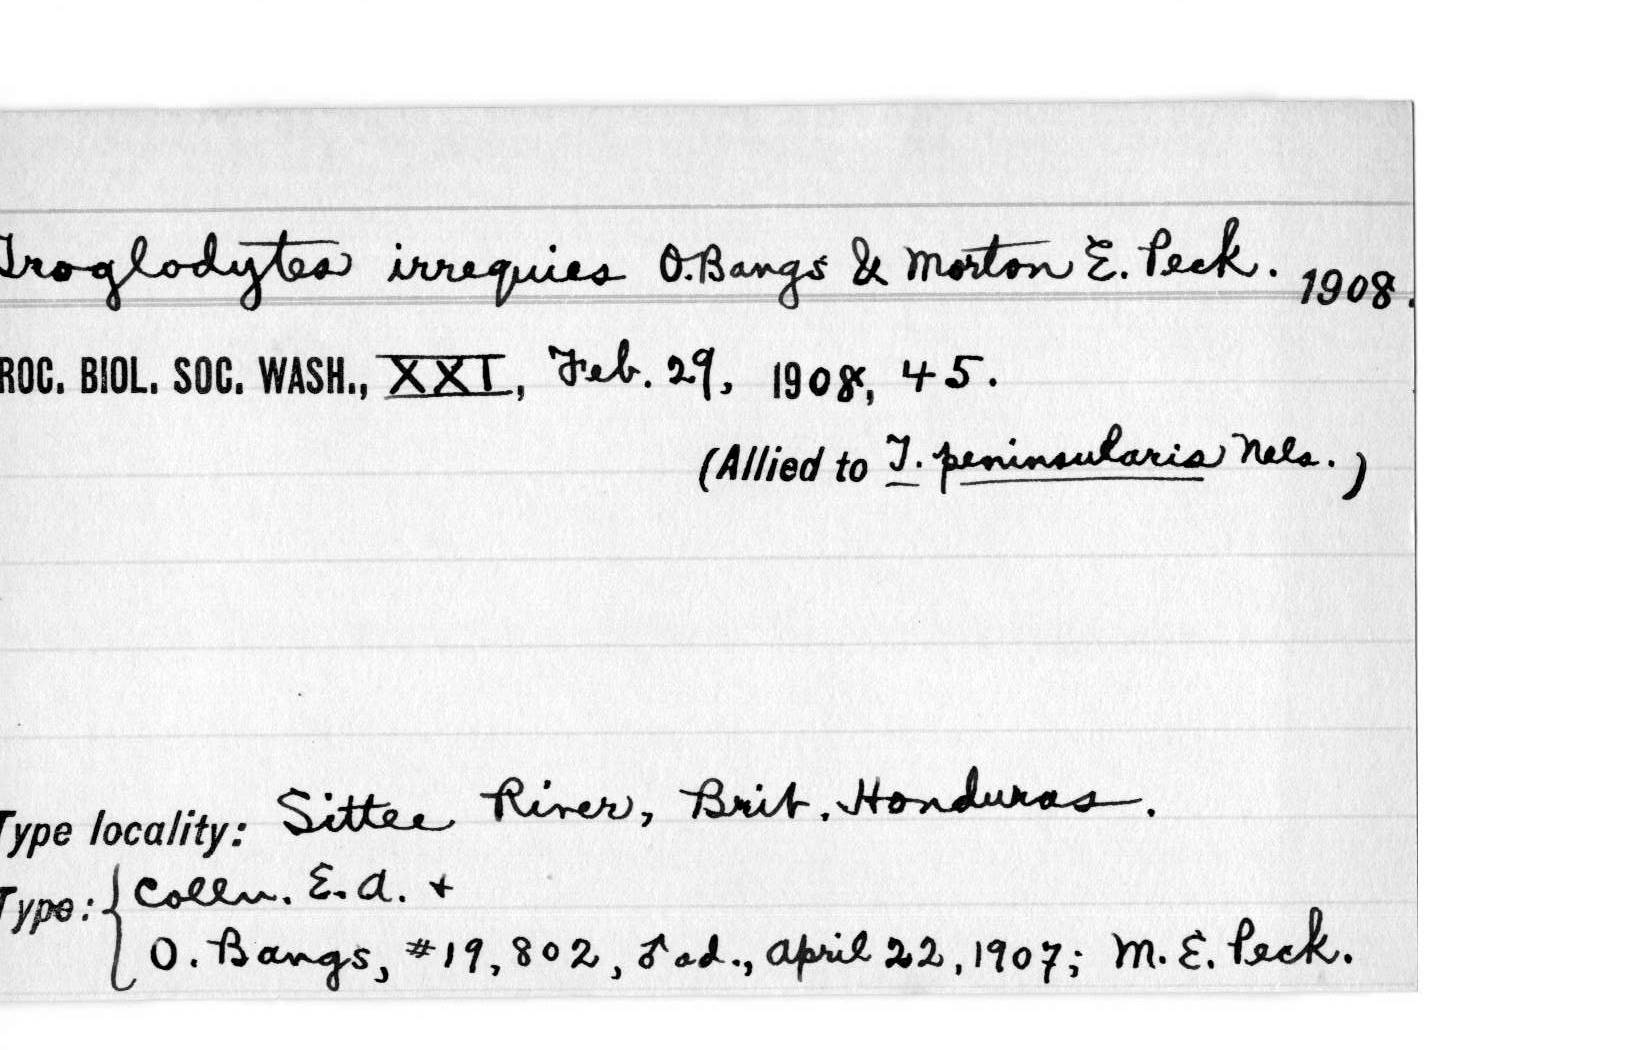 Troglodytes irrequies O. Bangs & Morton E. Peck. 1908.
ROC. BIOL. SOC. WASH., XXI, Feb. 29, 1908, 45.
(Allied to T. peninsularis Nels.)
Type locality: Sittee River, Brit. Honduras.
Type: { Colln. E. A. +
O. Bangs, #19,802, ♂ ad., April 22, 1907; M. E. Peck.